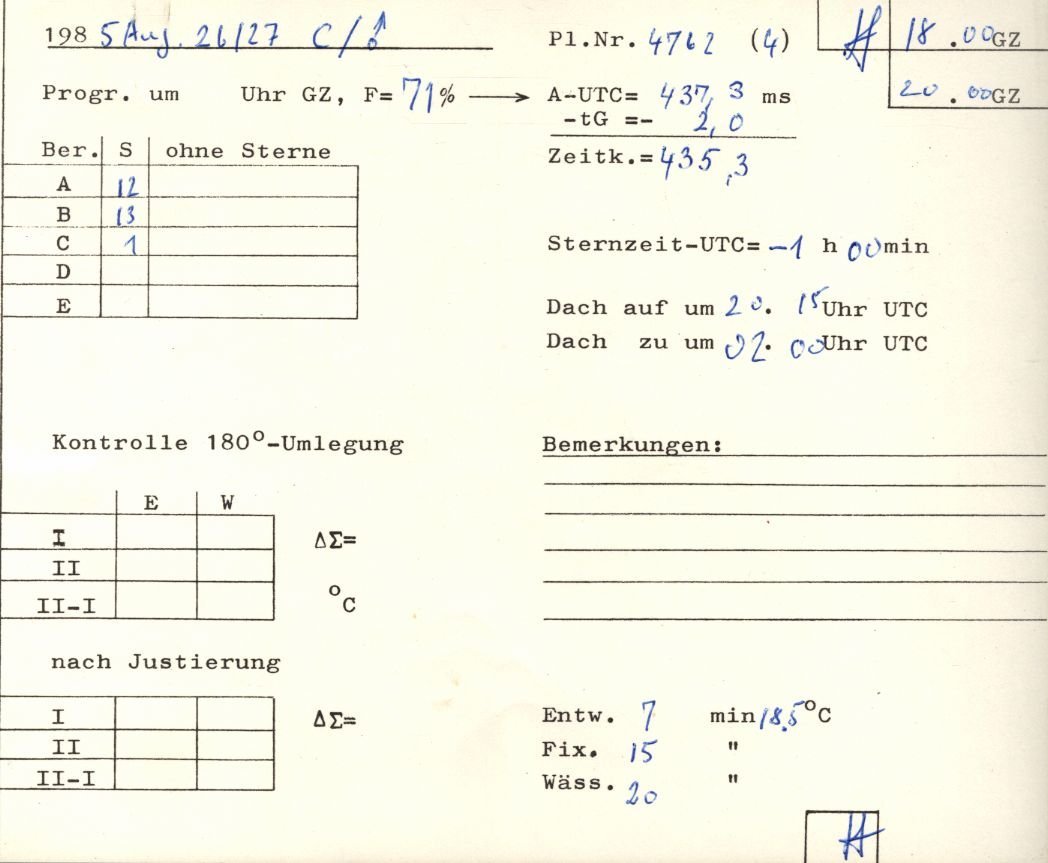 1985 Aug. 26/27 C/♂ Pl.Nr. 4762 (4) H 18.00GZ
Progr. um Uhr GZ, F= 71% → A-UTC= 437,3 ms 20.00GZ
-tG =- 2,0
Ber. S ohne Sterne Zeitk.= 435,3
A 12
B 13
C 1 Sternzeit-UTC= -1 h 00min
D
E Dach auf um 20. 15Uhr UTC
Dach zu um 02. 00Uhr UTC
Kontrolle 180°-Umlegung Bemerkungen:
E W
I ΔΣ=
II
II-I °C
nach Justierung
I ΔΣ= Entw. 7 min 18,5°C
II Fix. 15 "
II-I Wäss. 20 "
H